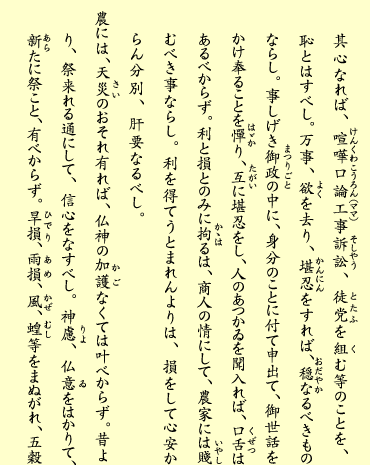 其心なれば、喧嘩口論工事訴訟、徒党を組む等のことを、
恥とはすべし。万事、欲を去り、堪忍をすれば、穏なるべきもの
ならし。事しげき御政の中に、身分のことに付て申出て、御世話を
かけ奉ることを憚り、互に堪忍をし、人のあつかゐを聞入れば、口舌は
あるべからず。利と損とのみに拘るは、商人の情にして、農家には賤
むべき事ならし。利を得てうとまれんよりは、損をして心安か
らん分別、肝要なるべし。
農には、天災のおそれ有れば、仏神の加護なくては叶べからず。昔よ
り、祭来れる通にして、信心をなすべし。神慮、仏意をはかりて、
新たに祭こと、有べからず。旱損、雨損、風、蝗等をまぬがれ、五穀